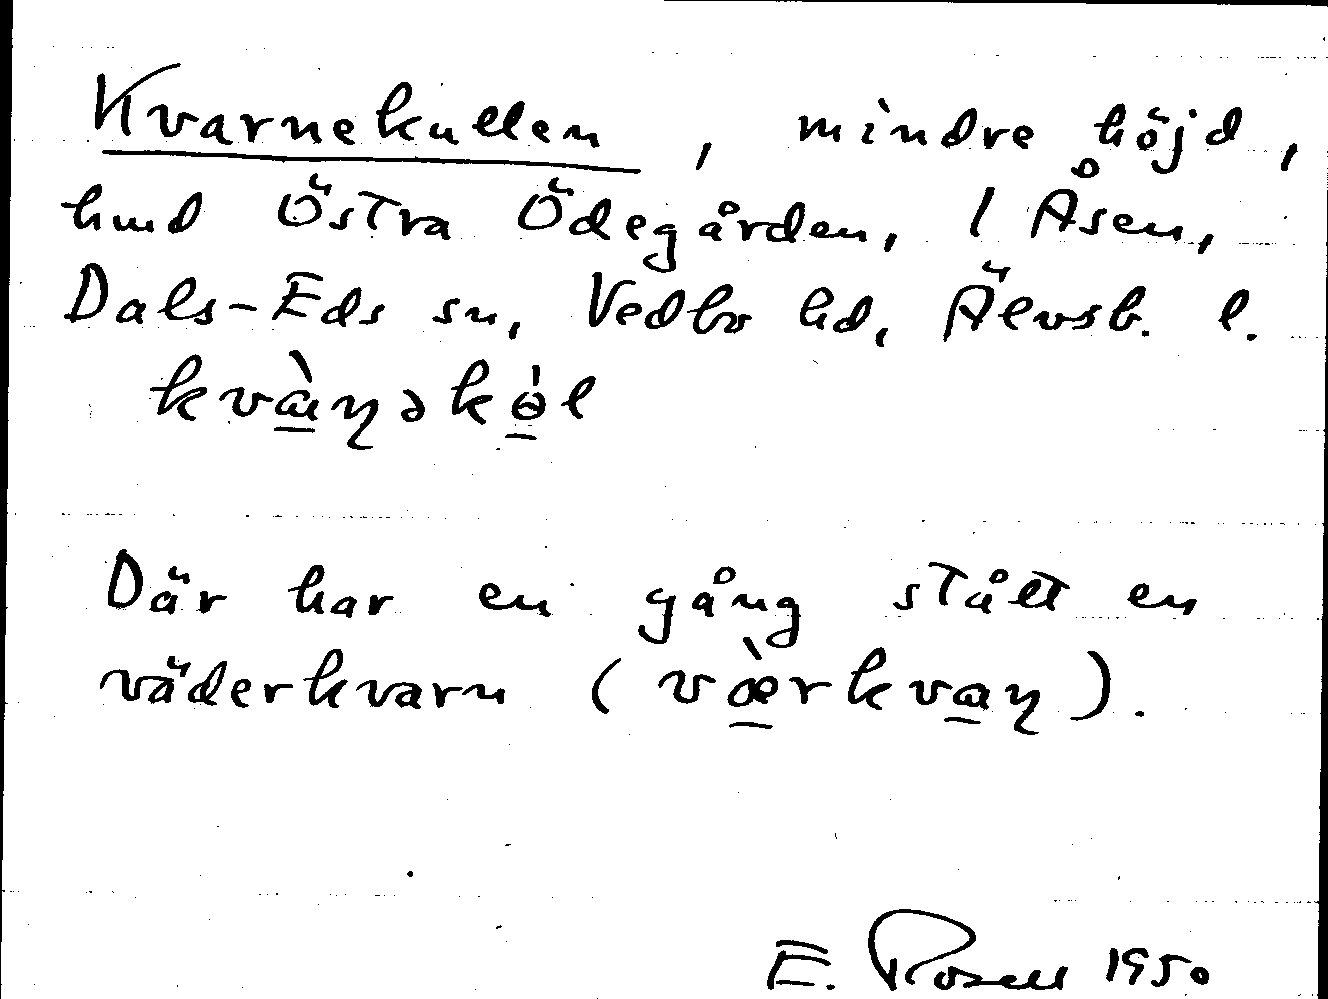 Kvarnekullen, mindre höjd,
hmd Östra Ödegården, 1 Åsen,
Dals-Eds sn, Vedbo hd, Älvsb. l.
kvàɳəkɵ̀l
Där har en gång stått en
väderkvarn (væ̀rkvaɳ).
E. Rosell 1950